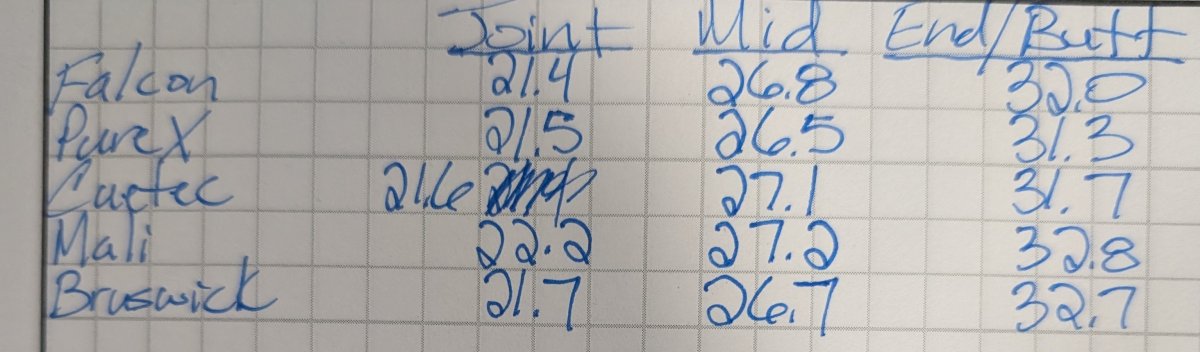 Joint Mid End/Butt
Falcon 21.4 26.8 32.0
PureX 21.5 26.5 31.3
Cuetec 21.6 27.1 31.7
Mali 22.2 27.2 32.8
Bruswick 21.7 26.7 32.7